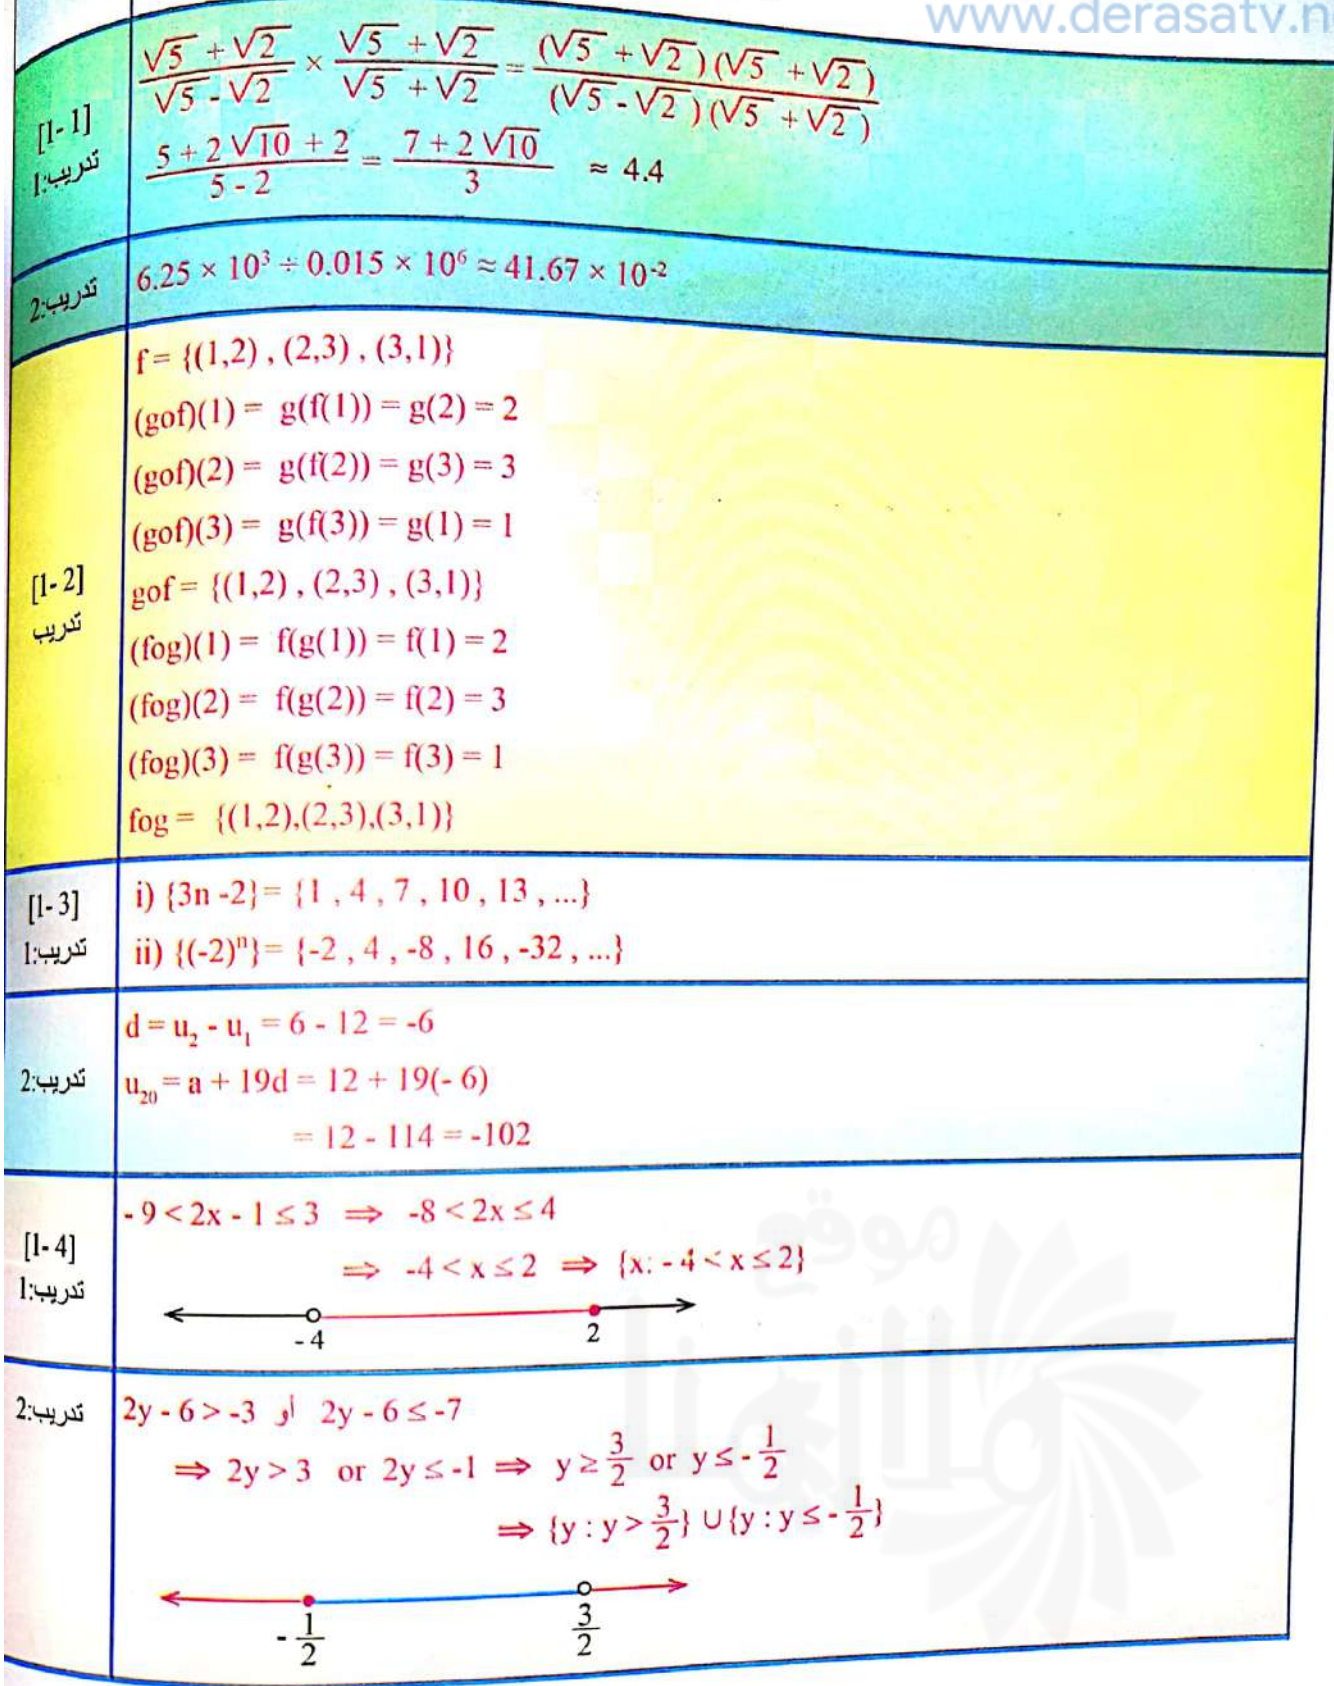 www.derasatv.n
[1-1]
تدريب:1
(√5 + √2)/(√5 - √2) × (√5 + √2)/(√5 + √2) = ((√5 + √2)(√5 + √2))/((√5 - √2)(√5 + √2))
(5 + 2√10 + 2)/(5 - 2) = (7 + 2√10)/3 ≈ 4.4
تدريب:2
6.25 × 10³ ÷ 0.015 × 10⁶ ≈ 41.67 × 10⁻²
[1-2]
تدريب
f = {(1,2) , (2,3) , (3,1)}
(gof)(1) = g(f(1)) = g(2) = 2
(gof)(2) = g(f(2)) = g(3) = 3
(gof)(3) = g(f(3)) = g(1) = 1
gof = {(1,2) , (2,3) , (3,1)}
(fog)(1) = f(g(1)) = f(1) = 2
(fog)(2) = f(g(2)) = f(2) = 3
(fog)(3) = f(g(3)) = f(3) = 1
fog = {(1,2),(2,3),(3,1)}
[1-3]
تدريب:1
i) {3n -2} = {1 , 4 , 7 , 10 , 13 , ...}
ii) {(-2)ⁿ} = {-2 , 4 , -8 , 16 , -32 , ...}
تدريب:2
d = u₂ - u₁ = 6 - 12 = -6
u₂₀ = a + 19d = 12 + 19(- 6)
= 12 - 114 = -102
[1-4]
تدريب:1
- 9 < 2x - 1 ≤ 3 ⇒ -8 < 2x ≤ 4
⇒ -4 < x ≤ 2 ⇒ {x: - 4 < x ≤ 2}
- 4 2
تدريب:2
2y - 6 > -3 أو 2y - 6 ≤ -7
⇒ 2y > 3 or 2y ≤ -1 ⇒ y ≥ 3/2 or y ≤ - 1/2
⇒ {y : y > 3/2} ∪ {y : y ≤ - 1/2}
- 1/2 3/2
موقع